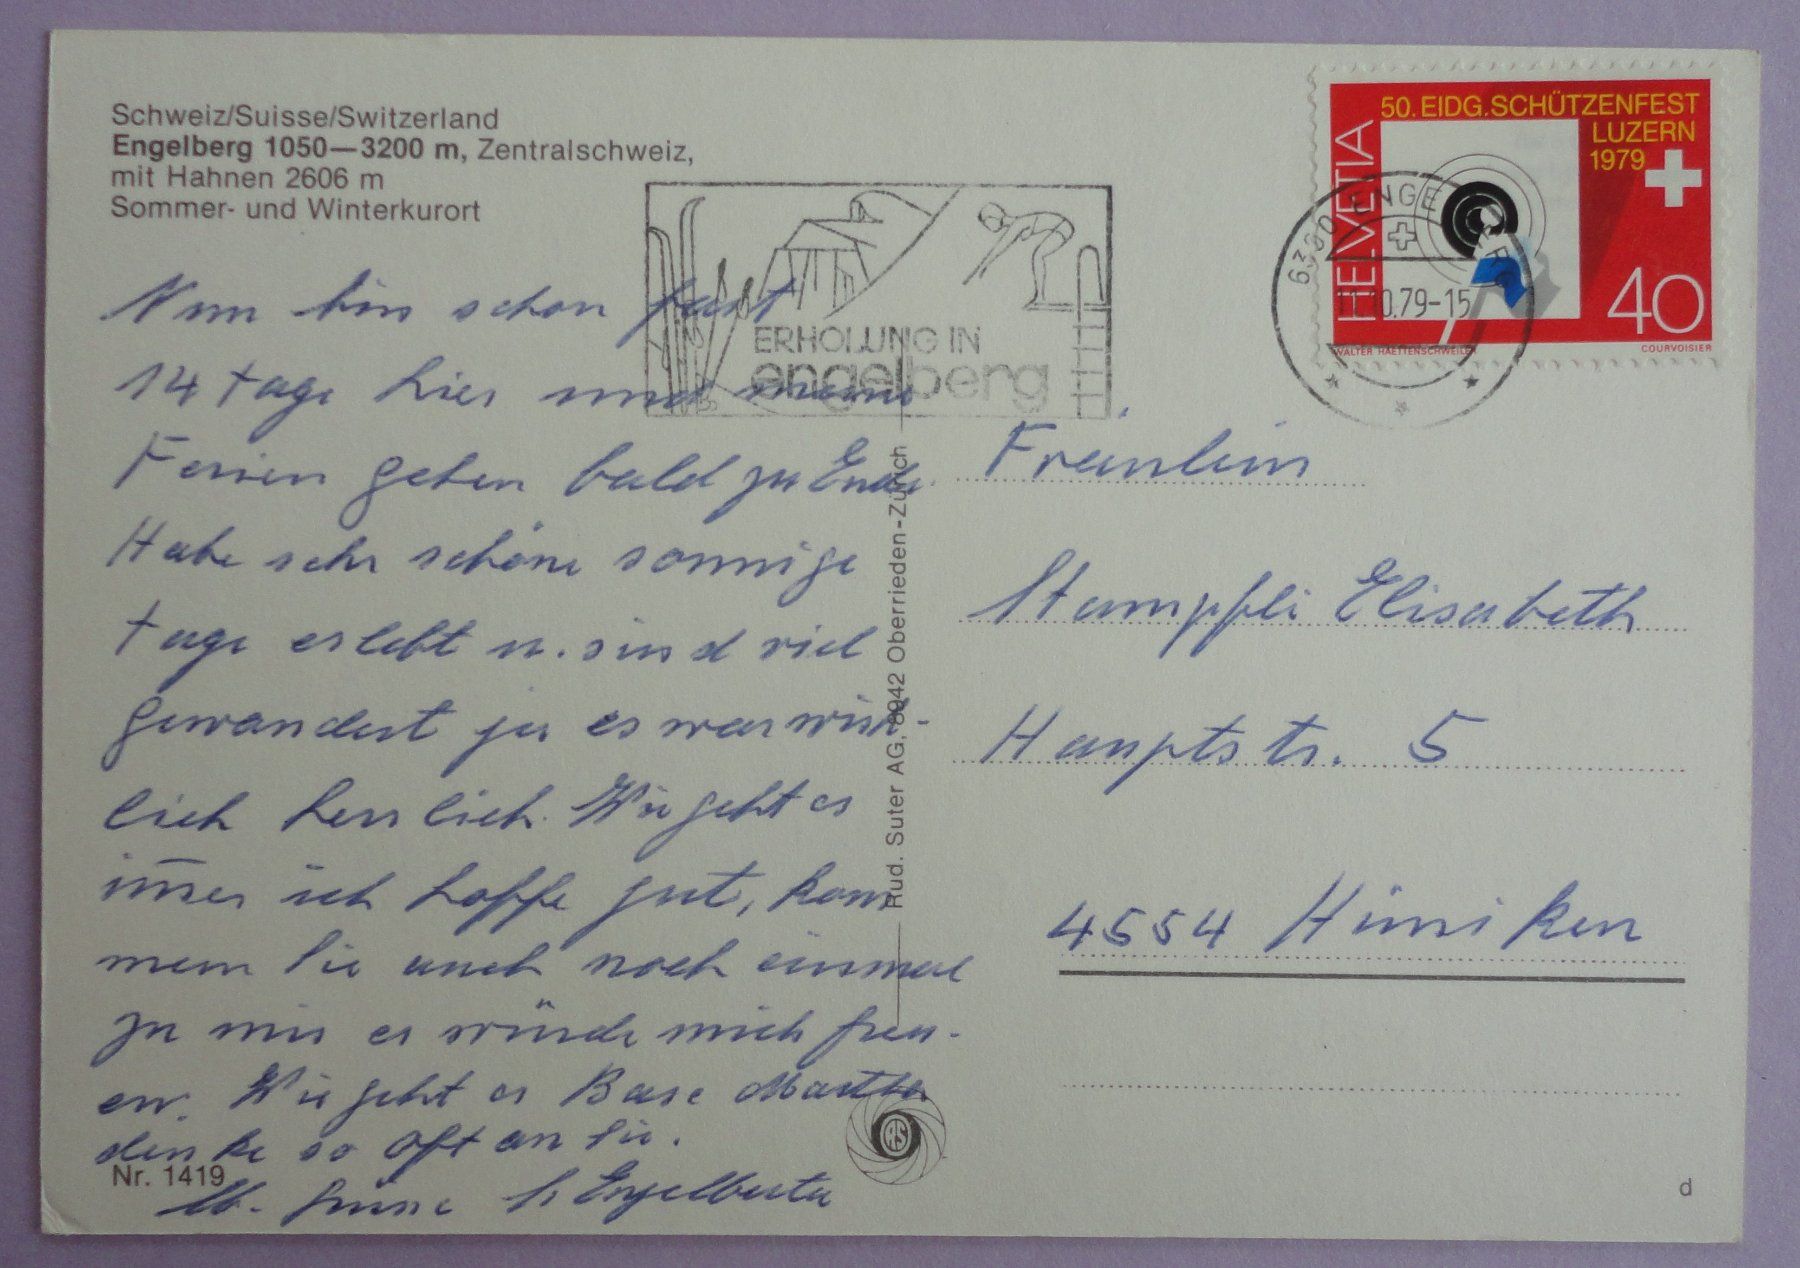 Schweiz/Suisse/Switzerland
Engelberg 1050—3200 m, Zentralschweiz,
mit Hahnen 2606 m
Sommer- und Winterkurort
Nun bin schon fast
14 tage hier und meine
Ferien gehen bald zu Ende.
Habe sehr schöne sonnige
tage erlebt u. sind viel
gewandert ja es war wirk-
lich herrlich. Wie geht es
im̄er ich hoffe gut, kom
men Sie auch noch einmal
zu mir es würde mich freu-
en. Wie geht es Base Martha
denke so oft an Sie.
lb. Grüsse Engelberta
Nr. 1419
ERHOLUNG IN
engelberg
Rud. Suter AG, 8942 Oberrieden-Zürich
RS
50. EIDG. SCHÜTZENFEST
LUZERN
1979
HELVETIA
40
WALTER HAETTENSCHWEILER
COURVOISIER
6390 ENGELBERG
11.10.79-15
Fräulein
Stampfli Elisabeth
Hauptstr. 5
4554 Hüniken
d